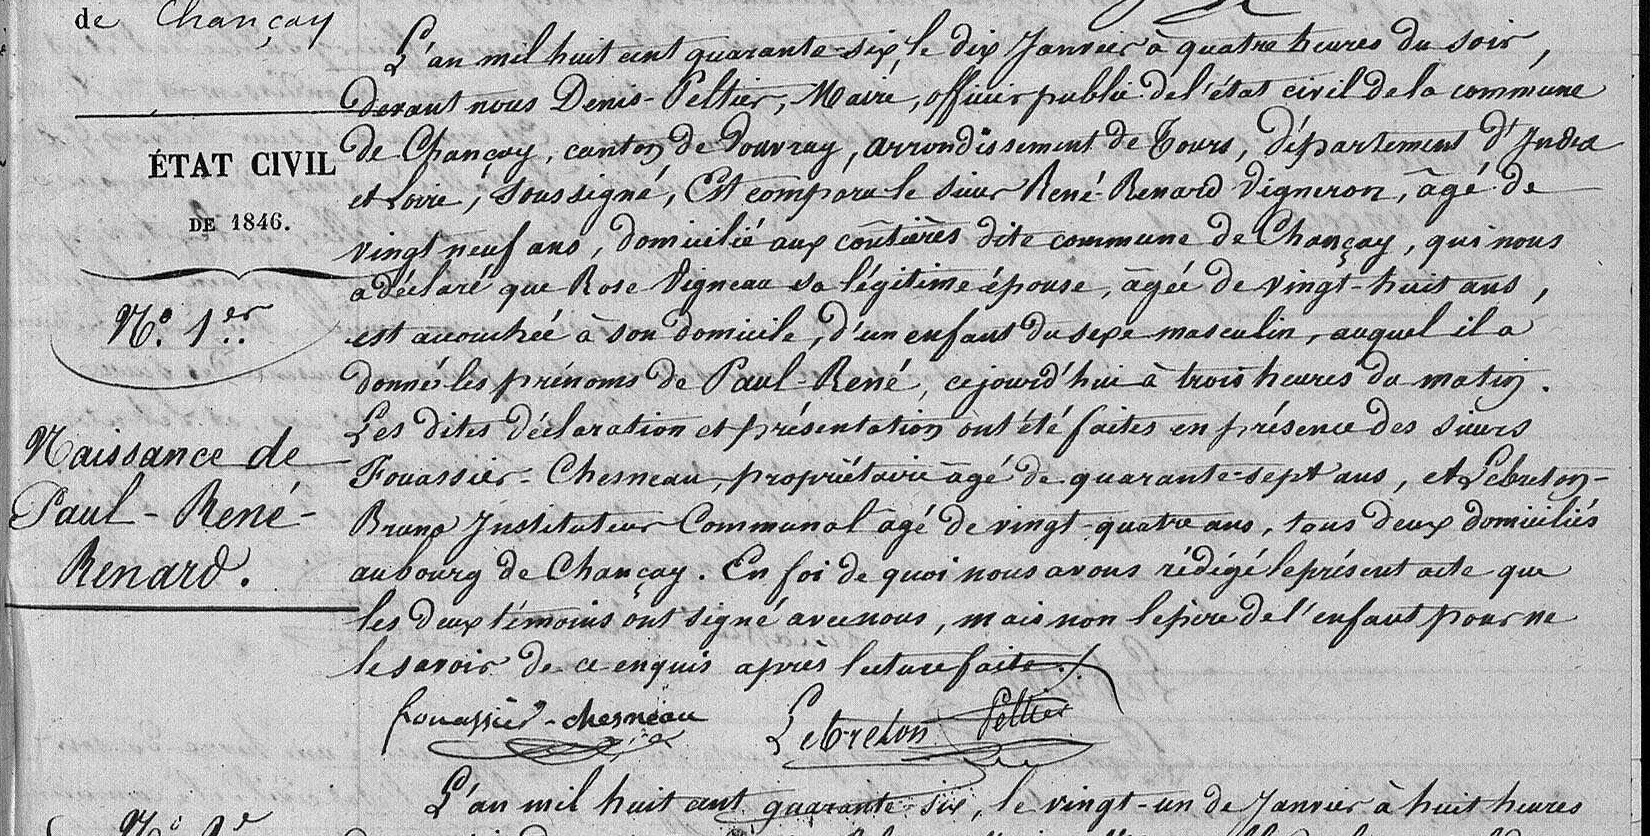 de Chançay
ÉTAT CIVIL
DE 1846.
N.o 1.er
Naissance de
Paul-René-
Renard.
L'an mil huit cent quarante-six, le dix Janvier à quatre heures du soir,
devant nous Denis-Peltier, Maire, officier public de l'état civil de la commune
de Chançay, canton de Vouvray, arrondissement de Tours, département d'Indre
et Loire, soussigné, Est comparu le sieur René-Renard Vigneron, âgé de
vingt neuf ans, domicilié aux coutières dite commune de Chançay, qui nous
a déclaré que Rose Vigneau sa légitime épouse, âgée de vingt-huit ans,
est accouchée à son domicile, d'un enfant du sexe masculin, auquel il a
donné les prénoms de Paul-René, ce jourd'hui à trois heures du matin.
Les dites déclaration et présentation ont été faites en présence des sieurs
Fouassier-Chesneau, propriétaire âgé de quarante-sept ans, et Lebreton-
Bruno Instituteur Communal âgé de vingt-quatre ans, tous deux domiciliés
au bourg de Chançay. En foi de quoi nous avons rédigé le présent acte que
les deux témoins ont signé avec nous, mais non le père de l'enfant pour ne
le savoir de ce enquis après lecture faite.
fouassier-chesneau Lebreton Peltier
L'an mil huit cent quarante-six, le vingt-un de Janvier à huit heures